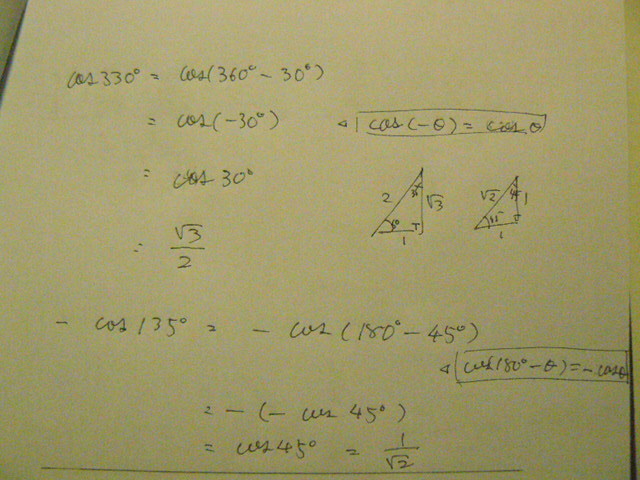 cos 330° = cos(360° - 30°)
= cos(-30°) ◁ cos(-θ) = cos θ
= cos 30°
2 30° √3 60° 1
√2 45° 1 45° 1
= √3/2
- cos 135° = - cos(180° - 45°)
◁ cos(180° - θ) = - cos θ
= - (- cos 45°)
= cos 45° = 1/√2